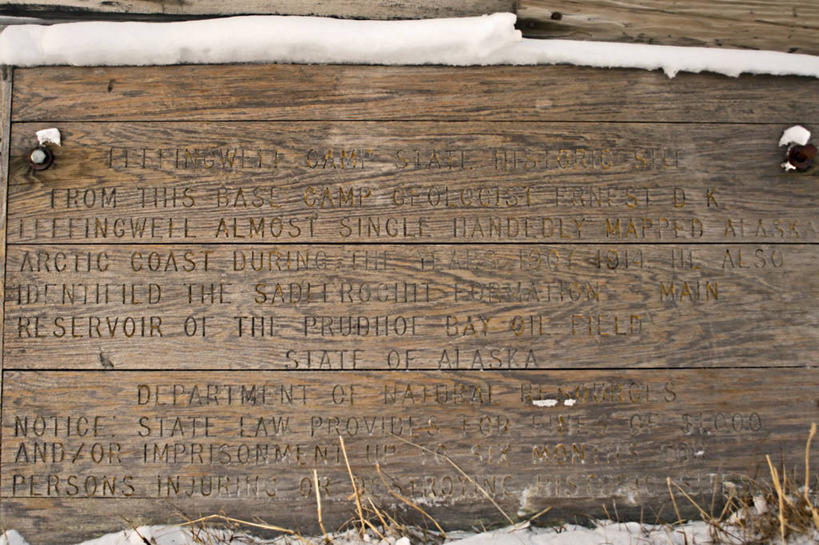 LEFFINGWELL CAMP STATE HISTORIC SITE
FROM THIS BASE CAMP GEOLOGIST ERNEST D K
LEFFINGWELL ALMOST SINGLE HANDEDLY MAPPED ALASKA
ARCTIC COAST DURING THE YEARS 1907 1914 HE ALSO
IDENTIFIED THE SADLEROCHIT FORMATION MAIN
RESERVOIR OF THE PRUDHOE BAY OIL FIELD
STATE OF ALASKA
DEPARTMENT OF NATURAL RESOURCES
NOTICE: STATE LAW PROVIDES FOR FINES OF $1000
AND/OR IMPRISONMENT UP TO SIX MONTHS FOR
PERSONS INJURING OR DESTROYING HISTORIC